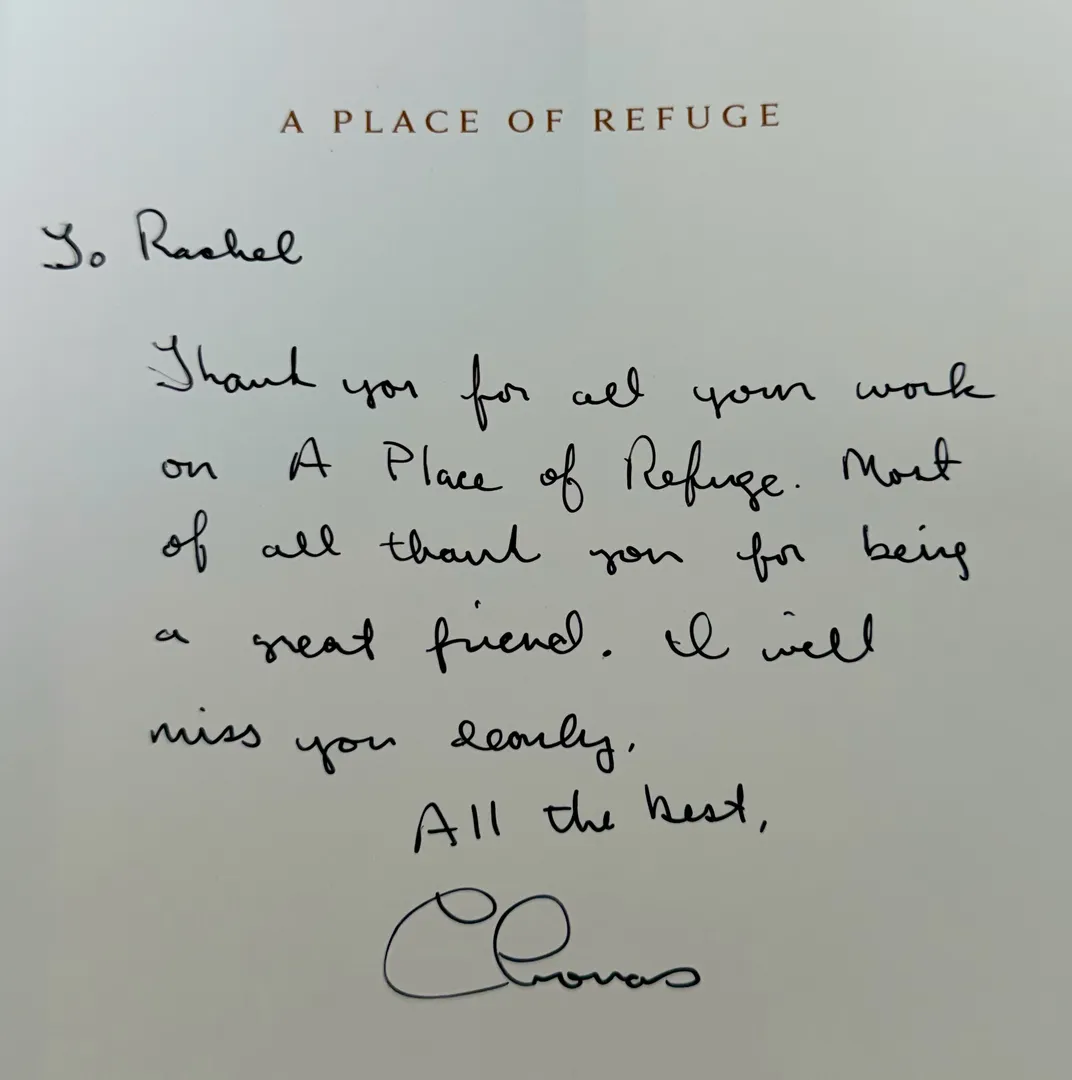 A PLACE OF REFUGE
To Rachel
Thank you for all your work
on A Place of Refuge. Most
of all thank you for being
a great friend. I will
miss you dearly.
All the best,